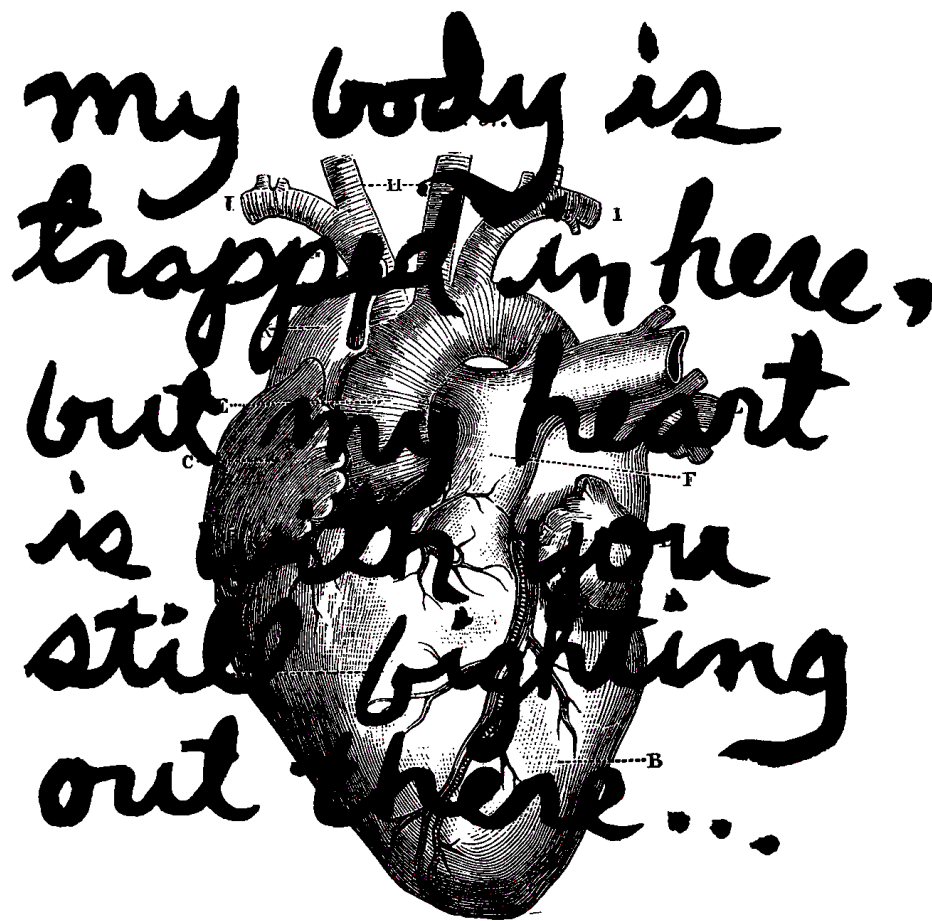 my body is
trapped in here,
but my heart
is with you
still fighting
out there...
H
I
I
C
F
B